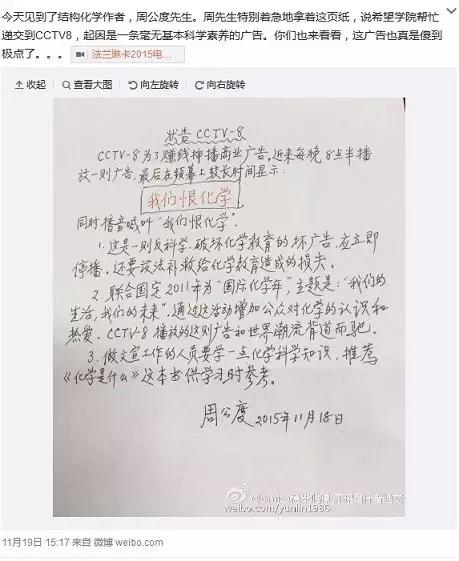 今天见到了结构化学作者，周公度先生。周先生特别着急地拿着这页纸，说希望学院帮忙
递交到CCTV8，起因是一条毫无基本科学素养的广告。你们也来看看，这广告也真是傻到
极点了。。。 法兰琳卡2015电...
收起 查看大图 向左旋转 向右旋转
警告CCTV-8
CCTV-8为了赚钱神播商业广告。近来每晚8点半播
放一则广告，最后在频幕上较长时间显示：
我们恨化学
同时播音喊叫“我们恨化学”.
1.这是一则反科学，破坏化学教育的坏广告，应立即
停播，还要设法补救给化学教育造成的损失.
2.联合国定2011年为“国际化学年”，主题是：“我们的
生活，我们的未来”，通过这活动增加公众对化学的认识和
热爱. CCTV-8播放的这则广告和世界潮流背道而驰.
3.做文宣工作的人员要学一点化学科学知识，推荐
《化学是什么》这本书供学习时参考。
周公度 2015年11月18日
weibo.com/yunlin1986
11月19日 15:17 来自 微博 weibo.com